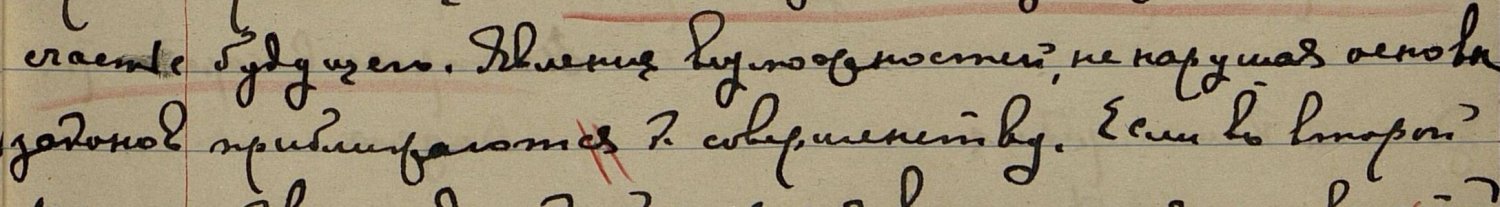 счастье будущего. Явления возможностей, не нарушая основы
законов приближаются к совершенству. Если во второй